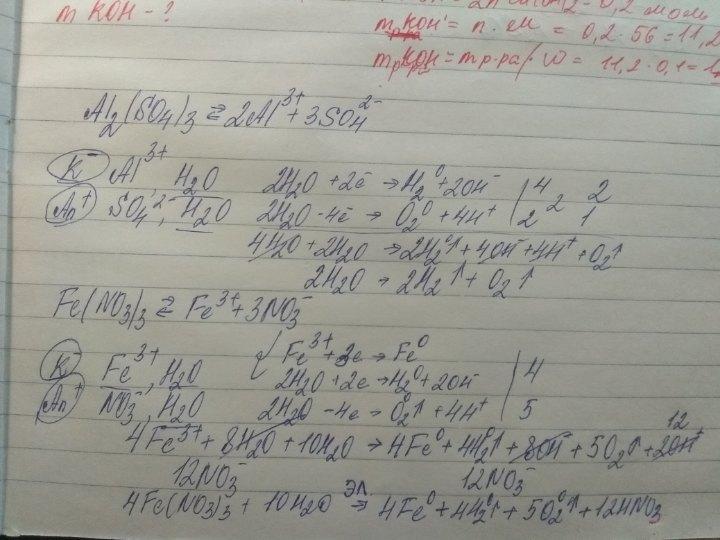 m KOH - ?
m KOH = n · M = 0,2 · 56 = 11,2
Al2(SO4)3 ⇄ 2Al³⁺ + 3SO4²⁻
K⁻ Al³⁺ H2O 2H2O + 2ē → H2⁰ + 2OH⁻ | 4 2 2
An⁺ SO4²⁻, H2O 2H2O - 4ē → O2⁰ + 4H⁺ | 2 1
4H2O + 2H2O → 2H2⁰↑ + 4OH⁻ + 4H⁺ + O2↑
2H2O → 2H2↑ + O2↑
Fe(NO3)3 ⇄ Fe³⁺ + 3NO3⁻
K⁻ Fe³⁺, H2O { Fe³⁺ + 3e → Fe⁰
2H2O + 2e → H2⁰ + 2OH⁻ | 4
An⁺ NO3⁻, H2O 2H2O - 4e → O2⁰↑ + 4H⁺ | 5
4Fe³⁺ + 8H2O + 10H2O → 4Fe⁰ + 4H2⁰↑ + 8OH⁻ + 5O2↑ + 12
12NO3⁻ 12NO3⁻
4Fe(NO3)3 + 10H2O эл. → 4Fe⁰ + 4H2⁰↑ + 5O2⁰↑ + 12HNO3